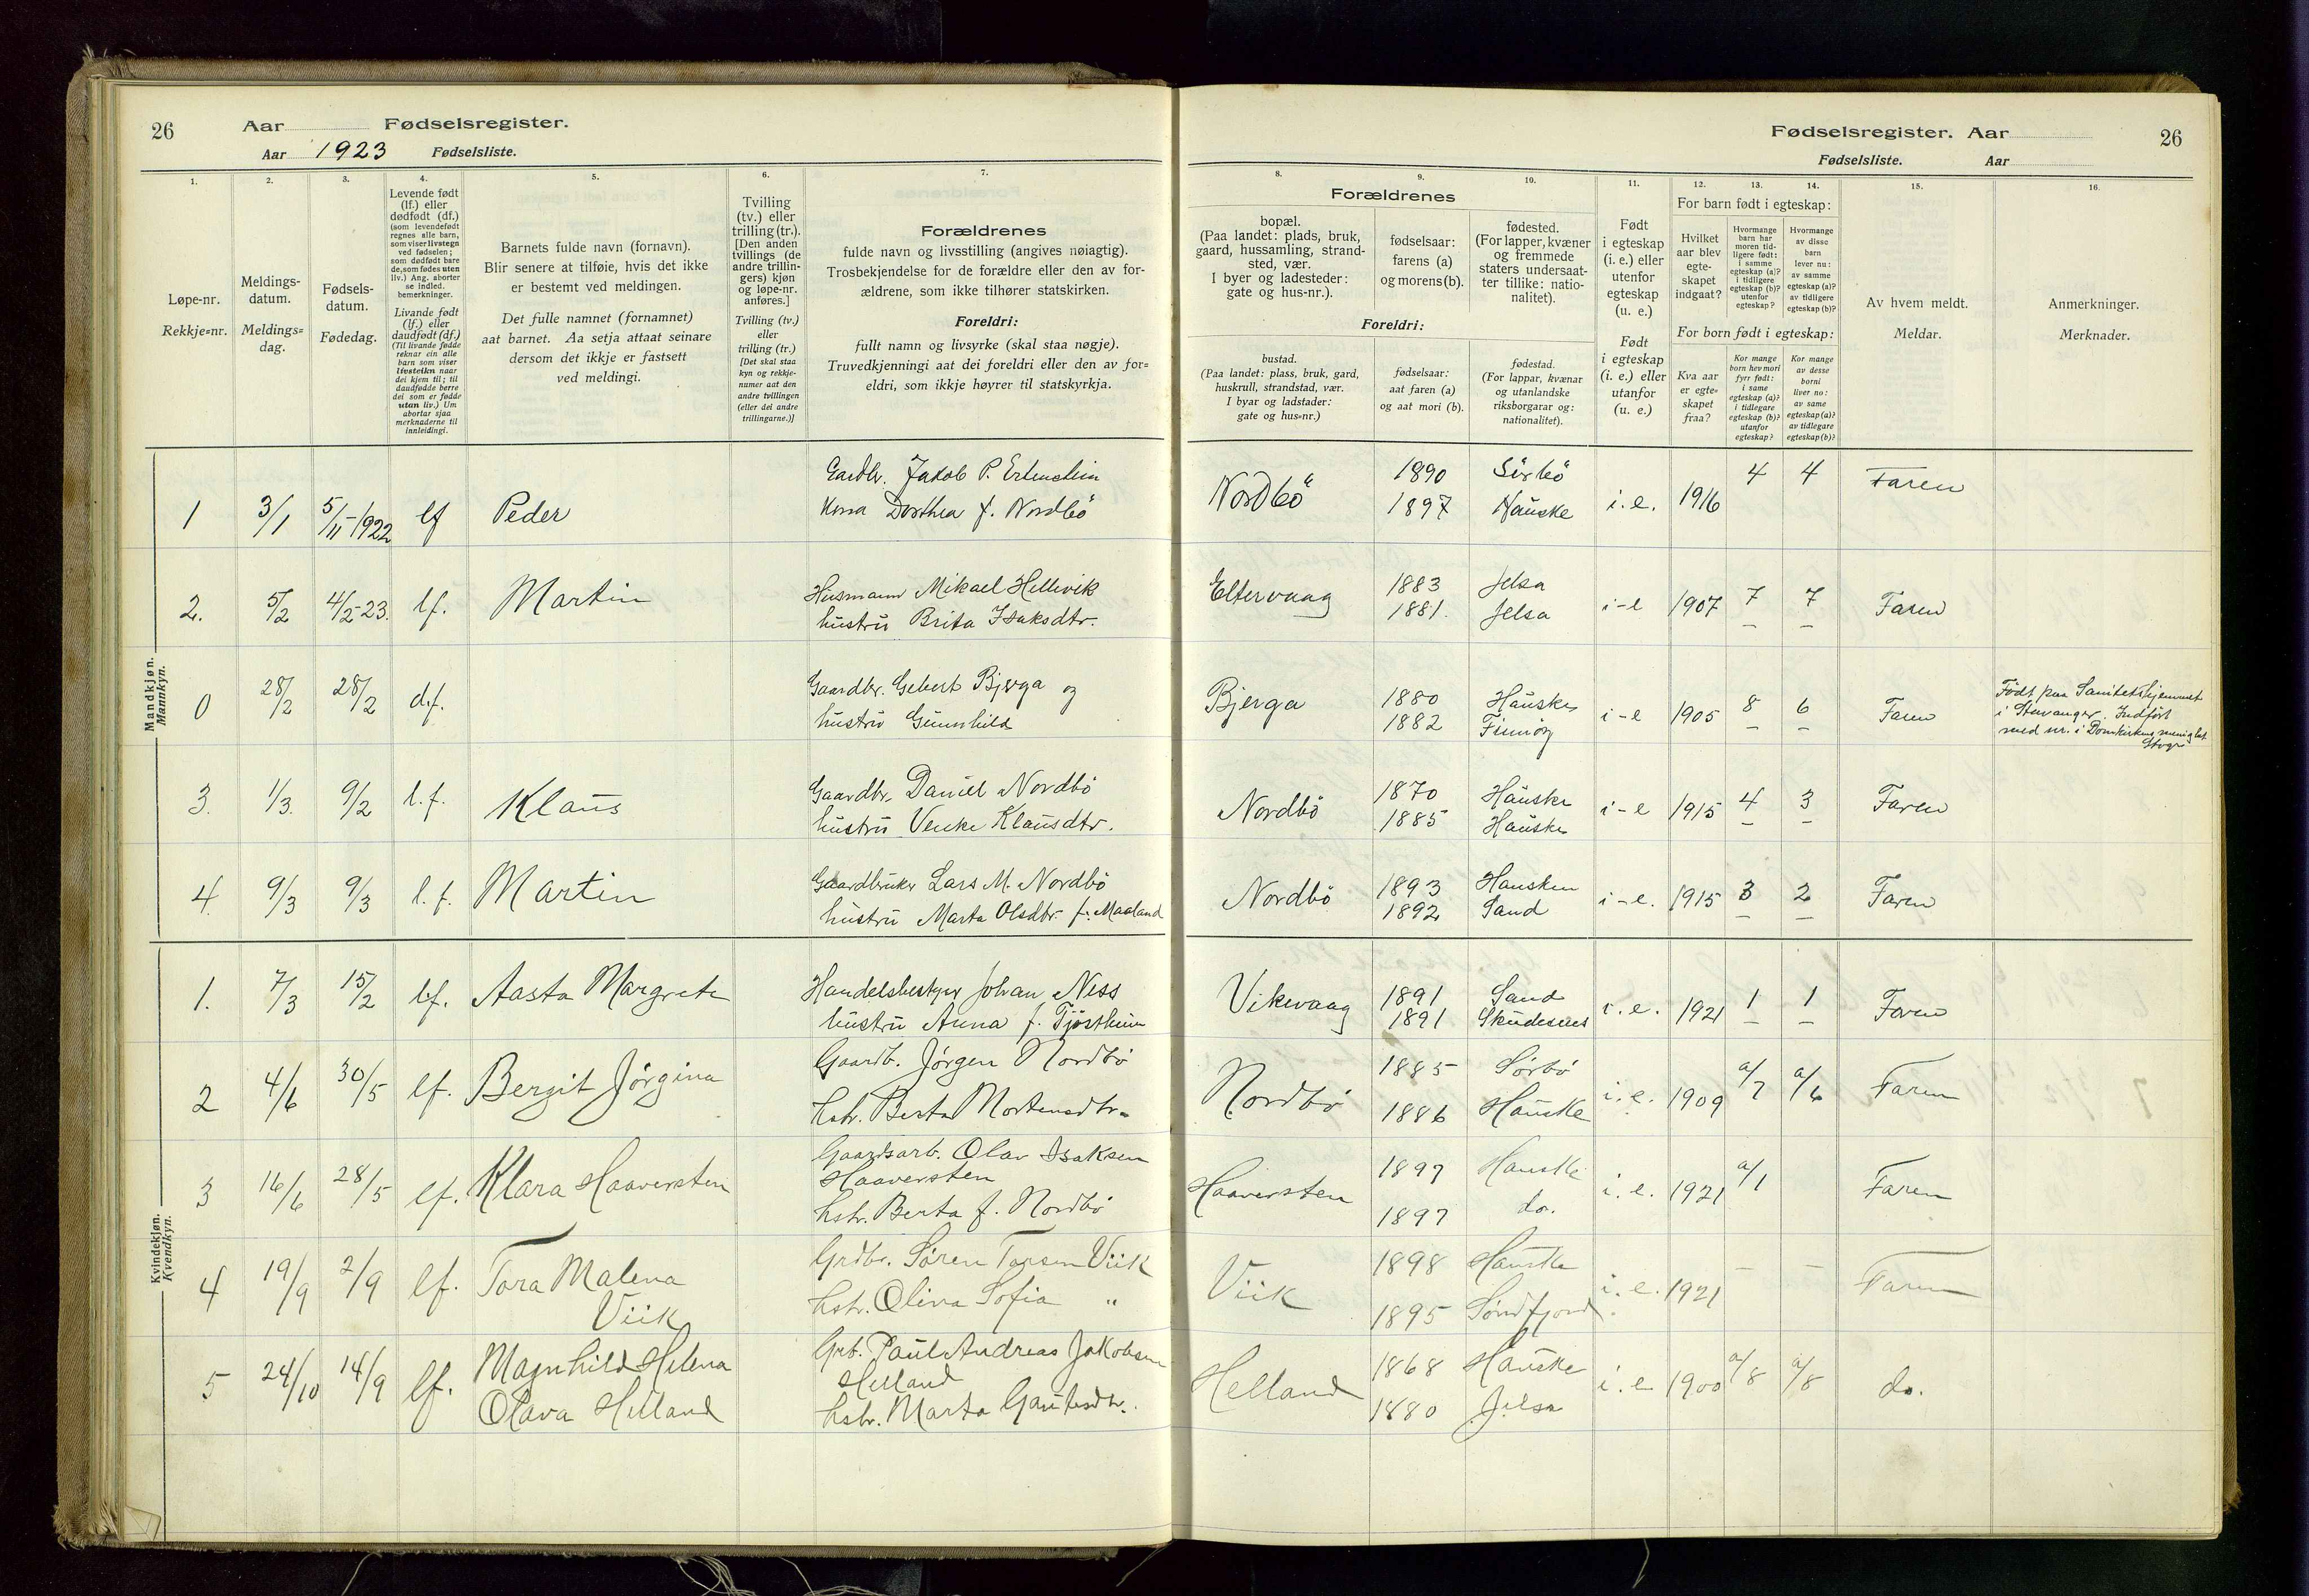 26 Aar Fødselsregister.
Aar 1923 Fødselsliste.
Fødselsregister. Aar 26
Fødselsliste. Aar
1. 2. 3. 4. 5. 6. 7.
Løpe-nr.
Rekkje=nr.
Meldings-
datum.
Meldings=
dag.
Fødsels-
datum.
Fødedag.
Levende født
(lf.) eller
dødfødt (df.)
(som levendefødt
regnes alle barn,
som viser livstegn
ved fødselen;
som dødfødt bare
de, som fødes uten
liv.) Ang. aborter
se indled.
bemerkninger.
Livande født
(lf.) eller
daudfødt (df.)
(Til livande fødde
reknar ein alle
barn som viser
livsteikn naar
dei kjem til; til
daudfødde berre
dei som er fødde
utan liv.) Um
abortar sjaa
merknaderne til
innleidingi.
Barnets fulde navn (fornavn).
Blir senere at tilføie, hvis det ikke
er bestemt ved meldingen.
Det fulle namnet (fornamnet)
aat barnet. Aa setja attaat seinare
dersom det ikkje er fastsett
ved meldingi.
Tvilling
(tv.) eller
trilling (tr.).
[Den anden
tvillings (de
andre trillin-
gers) kjøn
og løpe-nr.
anføres.]
Tvilling (tv.)
eller
trilling (tr.)
[Det skal staa
kyn og rekkje-
numer aat den
andre tvillingen
(eller dei andre
trillingarne.)]
Forældrenes
fulde navn og livsstilling (angives nøiagtig).
Trosbekjendelse for de forældre eller den av for-
ældrene, som ikke tilhører statskirken.
Foreldri:
fullt namn og livsyrke (skal staa nøgje).
Truvedkjenningi aat dei foreldri eller den av for=
eldri, som ikkje høyrer til statskyrkja.
8. 9. 10. 11. 12. 13. 14. 15. 16.
Forældrenes
bopæl.
(Paa landet: plads, bruk,
gaard, hussamling, strand-
sted, vær.
I byer og ladesteder:
gate og hus-nr.).
fødselsaar:
farens (a)
og morens (b).
fødested.
(For lapper, kvæner
og fremmede
staters undersaat-
ter tillike: natio-
nalitet).
Foreldri:
bustad.
(Paa landet: plass, bruk, gard,
huskrull, strandstad, vær.
I byar og ladstader:
gate og hus=nr.)
fødselsaar:
aat faren (a)
og aat mori (b).
fødestad.
(For lappar, kvænar
og utanlandske
riksborgarar og:
nationalitet).
Født
i egteskap
(i. e.) eller
utenfor
egteskap
(u. e.)
Født
i egteskap
(i. e.) eller
utanfor
(u. e.)
For barn født i egteskap:
Hvilket
aar blev
egte-
skapet
indgaat?
Hvormange
barn har
moren tid-
ligere født:
i samme
egteskap (a)?
i tidligere
egteskap (b)?
utenfor
egteskap?
Hvormange
av disse
barn
lever nu:
av samme
egteskap (a)?
av tidligere
egteskap (b)?
For born født i egteskap:
Kva aar
er egte-
skapet
fraa?
Kor mange
born hev mori
fyrr født:
i same
egteskap (a)?
i tidlegare
egteskap (b)?
utanfor
egteskap?
Kor mange
av desse
borni
liver no:
av same
egteskap (a)?
av tidlegare
egteskap (b)?
Av hvem meldt.
Meldar.
Anmerkninger.
Merknader.
Mandkjøn.
Mannkyn.
1 3/1 5/11-1922 lf Peder Gardbr. Jakob P. Nordbö 1890 i.e. 1916 4 4 Faren
Kona Dorthea f. Nordbö 1897 Hauske
2. 5/2 4/2-23. lf. Martin Husmann Mikael Hellevik Eltervaag 1883 Jelsa i-e 1907 7 7 Faren
hustru Brita Isaksdtr. 1881. Jelsa
0 28/2 28/2 d.f. Gaardbr. Gebert Bjerga og Bjerga 1880 Hauske i-e 1905 8 6 Faren
hustru Gunnhild 1882 Finnöy
Födt paa Sanitetshjemmet
i Stavanger. Indfört
med nr. i Domkirkens menighet
Stvgr
3. 1/3. 9/2 l.f. Klaus Gaardbr. Daniel Nordbö Nordbö 1870 Hauske i-e 1915 4 3 Faren
hustru Venke Klausdtr. 1885 Hauske
4. 9/3 9/3 l.f. Martin Gaardbruker Lars M. Nordbö Nordbö 1893 Hausken i-e. 1915 3 2 Faren
hustru Marta Olsdtr. f. Maaland 1892 Sand
Kvindekjøn.
Kvendkyn.
1. 7/3 15/2 lf. Aasta Margrete Handelsbestyrer Johan Ness Vikevaag 1891 Sand i.e. 1921 1 1 Faren
hustru Anna f. Tjöstheim 1891 Skudesnes
2 4/6 30/5 lf. Bergit Jörgina Gaardb. Jörgen Nordbö Nordbö 1885 Sörbö i.e. 1909 a/7 a/6 Faren
hstr. Berta Mortensdtr. 1886 Hauske
3 16/6 28/5 lf. Klara Haaversten Gaardsarb. Olav Isaksen
Haaversten Haaversten 1897 Hauske i.e. 1921 a/1 Faren
hstr. Berta f. Nordbö 1897 do.
4 19/9 2/9 lf. Tora Malena Grdbr. Sören Tarsen Viik Viik 1898 Hauske i.e. 1921 - - Faren
Viik hstr. Oliva Sofia " 1895 Söndfjord
5 24/10 14/9 lf. Magnhild Helena Grb. Paul Andreas Jakobsen
Helland Helland 1868 Hauske i.e 1900 a/8 a/8 do.
Olava Helland hstr. Marta Gautesdtr. 1880 Jelsa